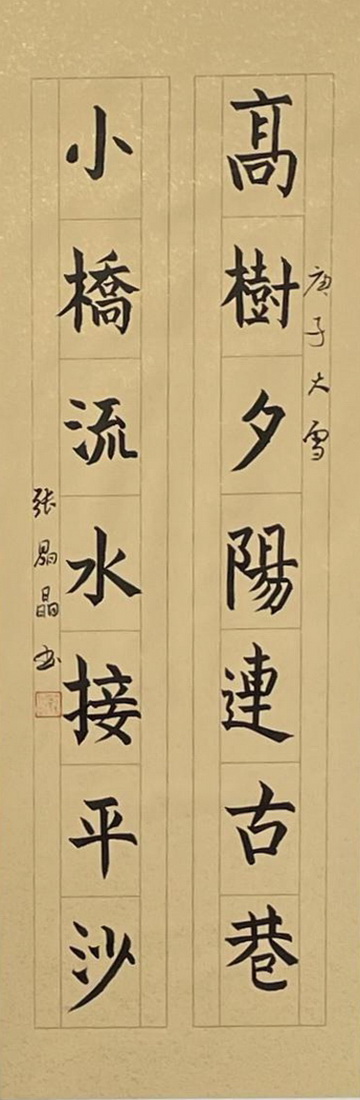 庚子大雪
髙樹夕陽連古巷
小橋流水接平沙
張晶書